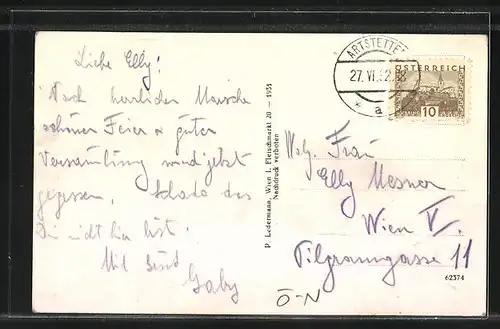 Liebe Elly!
Nach herrlicher Messe
schöner Feier & guter
Versammlung wird jetzt
gegessen, schade das
Du nicht hier bist.
Mit
Gaby
P. Ledermann, Wien I. Fleischmarkt 20 - 1931
Nachdruck verboten
ARTSTETTEN
27. VI. 32
* a
ÖSTERREICH
10
Frau
Elly Mesner
Wien V.
Pilgramgasse 11
62374
Ö-N